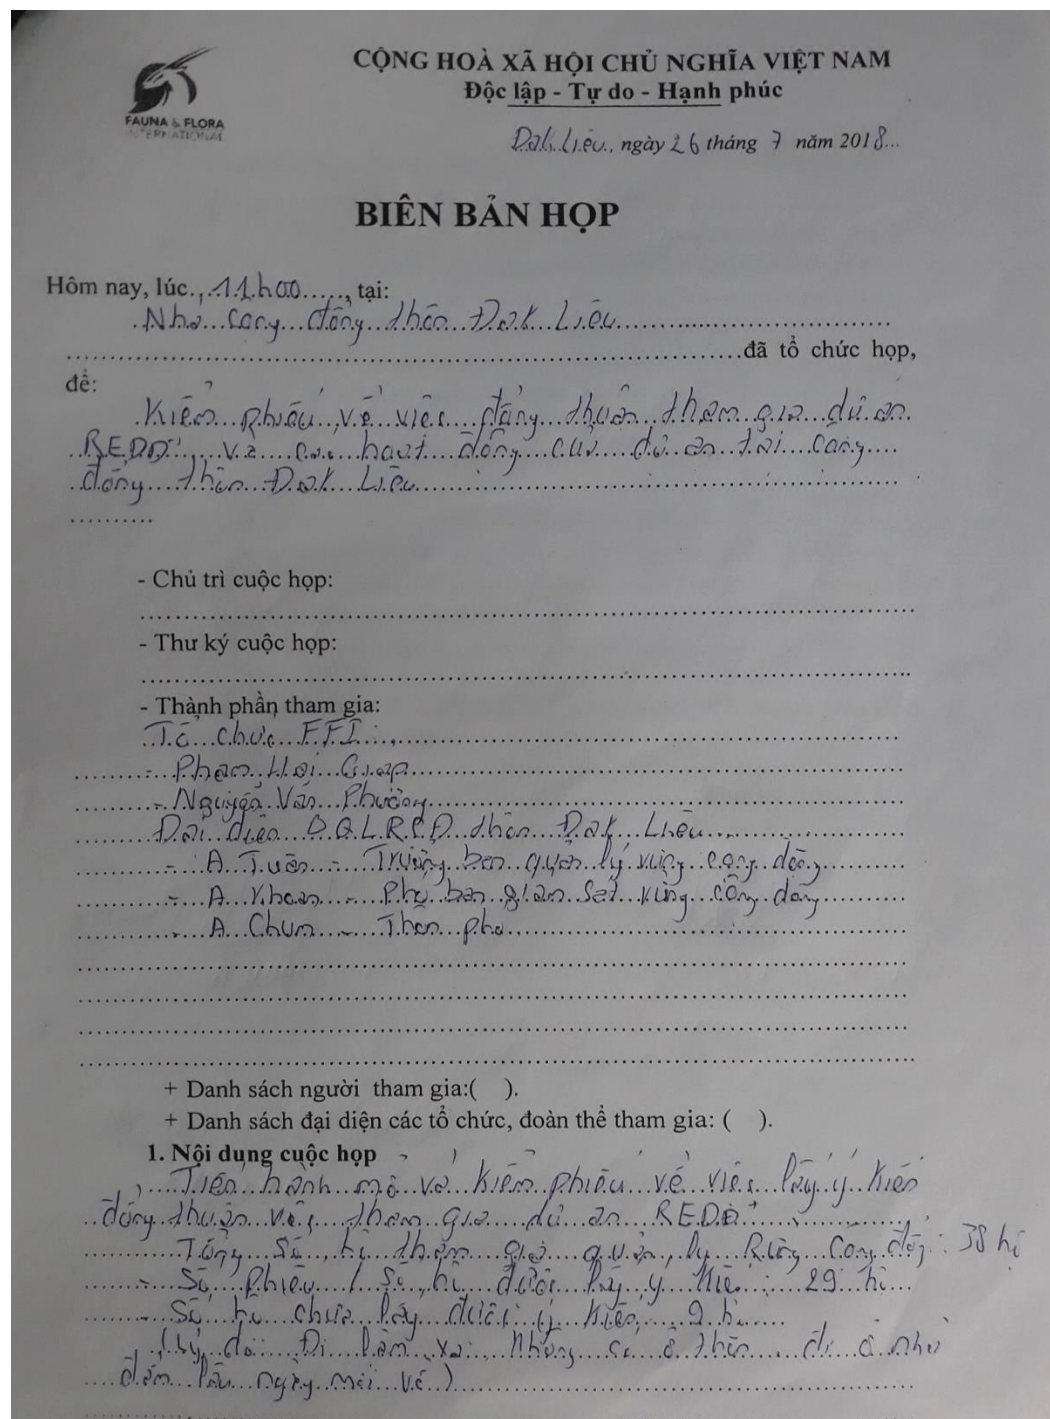 FAUNA & FLORA
INTERNATIONAL
CỘNG HOÀ XÃ HỘI CHỦ NGHĨA VIỆT NAM
Độc lập - Tự do - Hạnh phúc
Đak Liêu, ngày 26 tháng 7 năm 2018
BIÊN BẢN HỌP
Hôm nay, lúc 11h00, tại:
Nhà cộng đồng thôn Đak Liêu
đã tổ chức họp,
để:
Kiểm phiếu, về việc đồng thuận tham gia dự án
REDD+ và các hoạt động của dự án tại cộng
đồng thôn Đak Liêu
- Chủ trì cuộc họp:
- Thư ký cuộc họp:
- Thành phần tham gia:
Tổ chức FFI:
- Phạm Hoài Giáp
- Nguyễn Văn Phường
Đại diện BQLRCĐ thôn Đak Liêu
- A Tuân - Trưởng ban quản lý rừng cộng đồng
- A Khoan - Phụ ban giám sát rừng cộng đồng
- A Chum - Thôn phó
+ Danh sách người tham gia:( ).
+ Danh sách đại diện các tổ chức, đoàn thể tham gia: ( ).
1. Nội dung cuộc họp
Tiến hành mở và kiểm phiếu về việc lấy ý kiến
đồng thuận việc tham gia dự án REDD+
Tổng số hộ tham gia quản lý Rừng Cộng đồng: 38 hộ
- Số phiếu / số hộ được lấy ý kiến: 29 hộ
- Số hộ chưa lấy được ý kiến, 9 hộ
(lý do: Đi làm xa, không có ở thôn, đi ở nhà
đầm lâu ngày mới về)